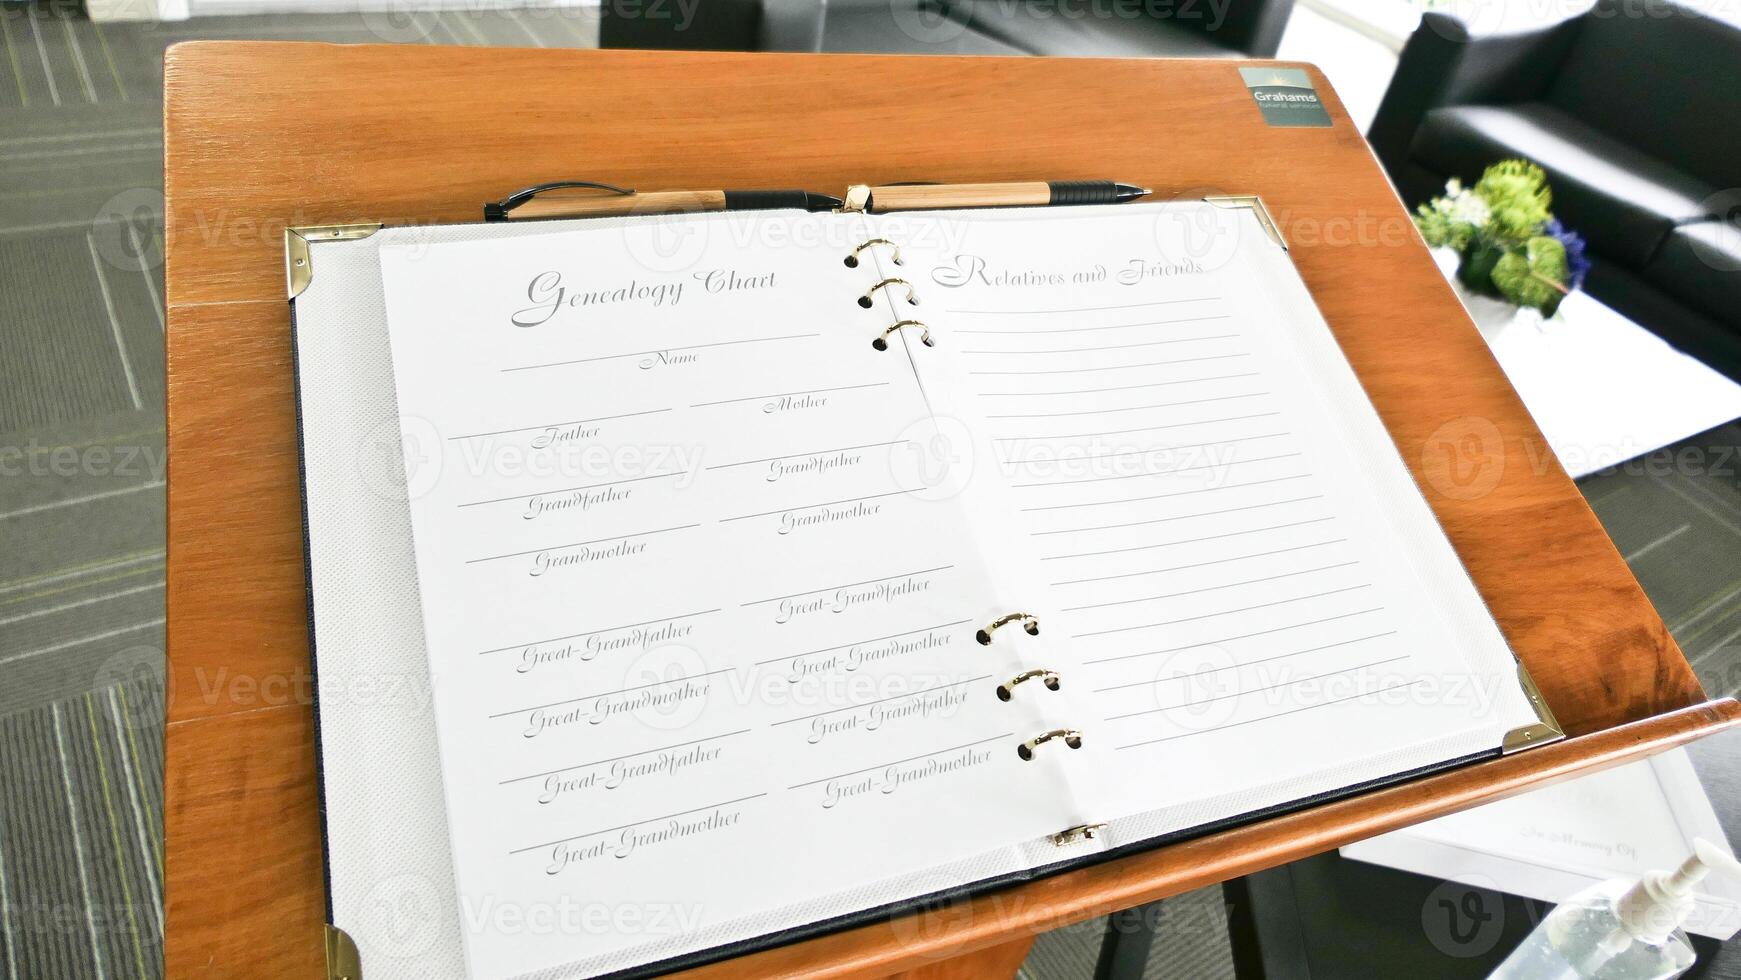 Grahams
funeral services
Genealogy Chart
Name
Father
Mother
Grandfather
Grandfather
Grandmother
Grandmother
Great-Grandfather
Great-Grandfather
Great-Grandmother
Great-Grandmother
Great-Grandfather
Great-Grandfather
Great-Grandmother
Great-Grandmother
Relatives and Friends
In Memory Of
Vecteezy